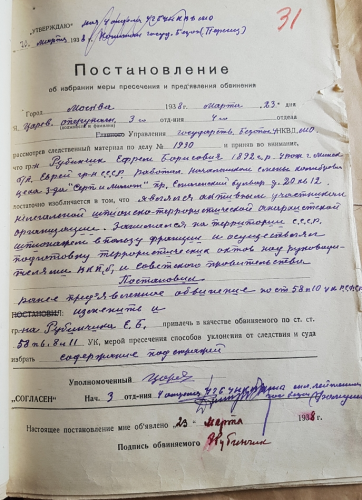 31
„УТВЕРЖДАЮ“ нач 4 отдела УГБ УНКВД МО
марта 1938 г.
Постановление
об избрании меры пресечения и пред'явления обвинения
Город Москва 1938 г. марта 23 дня
Я, опер 3-го отд-ния 4-го отдела
(должность и фамилия)
Главного Управления Государств. Безоп. НКВД МО
рассмотрев следственный материал по делу № 1930 и приняв во внимание,
что гр-н Рубинчик Ефрем Борисович 1892 г. р. урож г. Минска
б/п. Еврей гр-н СССР. работал начальником смены
цеха з-да "Серп и Молот" пр. Смоленский бульвар д. 20 кв 12.
достаточно изобличается в том, что являлся активным участником
шпионско-террористической
организации. Занимался на территории СССР.
шпионажем в пользу франции и осуществлял
подготовку террористических актов над руководи-
телями ВКП/б/ и советского правительства
Постановил
ранее пред'явленное обвинение по ст 58 п 10 ук РСФСР
ПОСТАНОВИЛ: изменить и
гр-на Рубинчика Е. Б. привлечь в качестве обвиняемого по ст. ст.
58 п. 6, 8 и 11 УК, мерой пресечения способов уклонения от следствия и суда
избрать содержание под стражей
Уполномоченный
„СОГЛАСЕН“ Нач. 3 отд-ния 4 отдела УГБ УНКВД МО
Настоящее постановление мне об'явлено 23 марта 1938 г.
Подпись обвиняемого Рубинчик